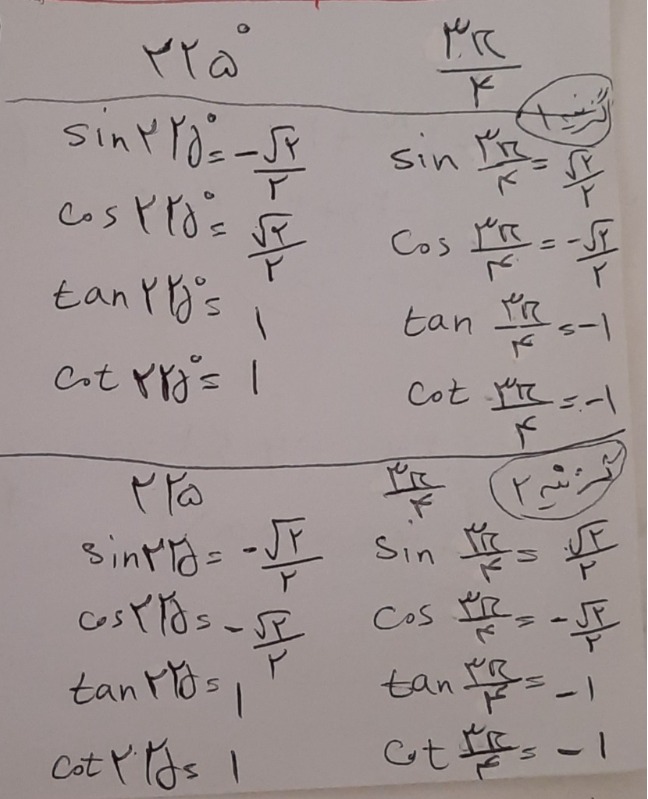 ۲۲۵° ۳π/۴
گزینه ۱
sin ۲۲۵° = -√۲/۲ sin ۳π/۴ = √۲/۲
cos ۲۲۵° = √۲/۲ cos ۳π/۴ = -√۲/۲
tan ۲۲۵° = ۱ tan ۳π/۴ = -۱
cot ۲۲۵° = ۱ cot ۳π/۴ = -۱
۲۲۵ ۳π/۴ گزینه ۲
sin ۲۲۵ = -√۲/۲ sin ۳π/۴ = √۲/۲
cos ۲۲۵ = -√۲/۲ cos ۳π/۴ = -√۲/۲
tan ۲۲۵ = ۱ tan ۳π/۴ = -۱
cot ۲۲۵ = ۱ cot ۳π/۴ = -۱